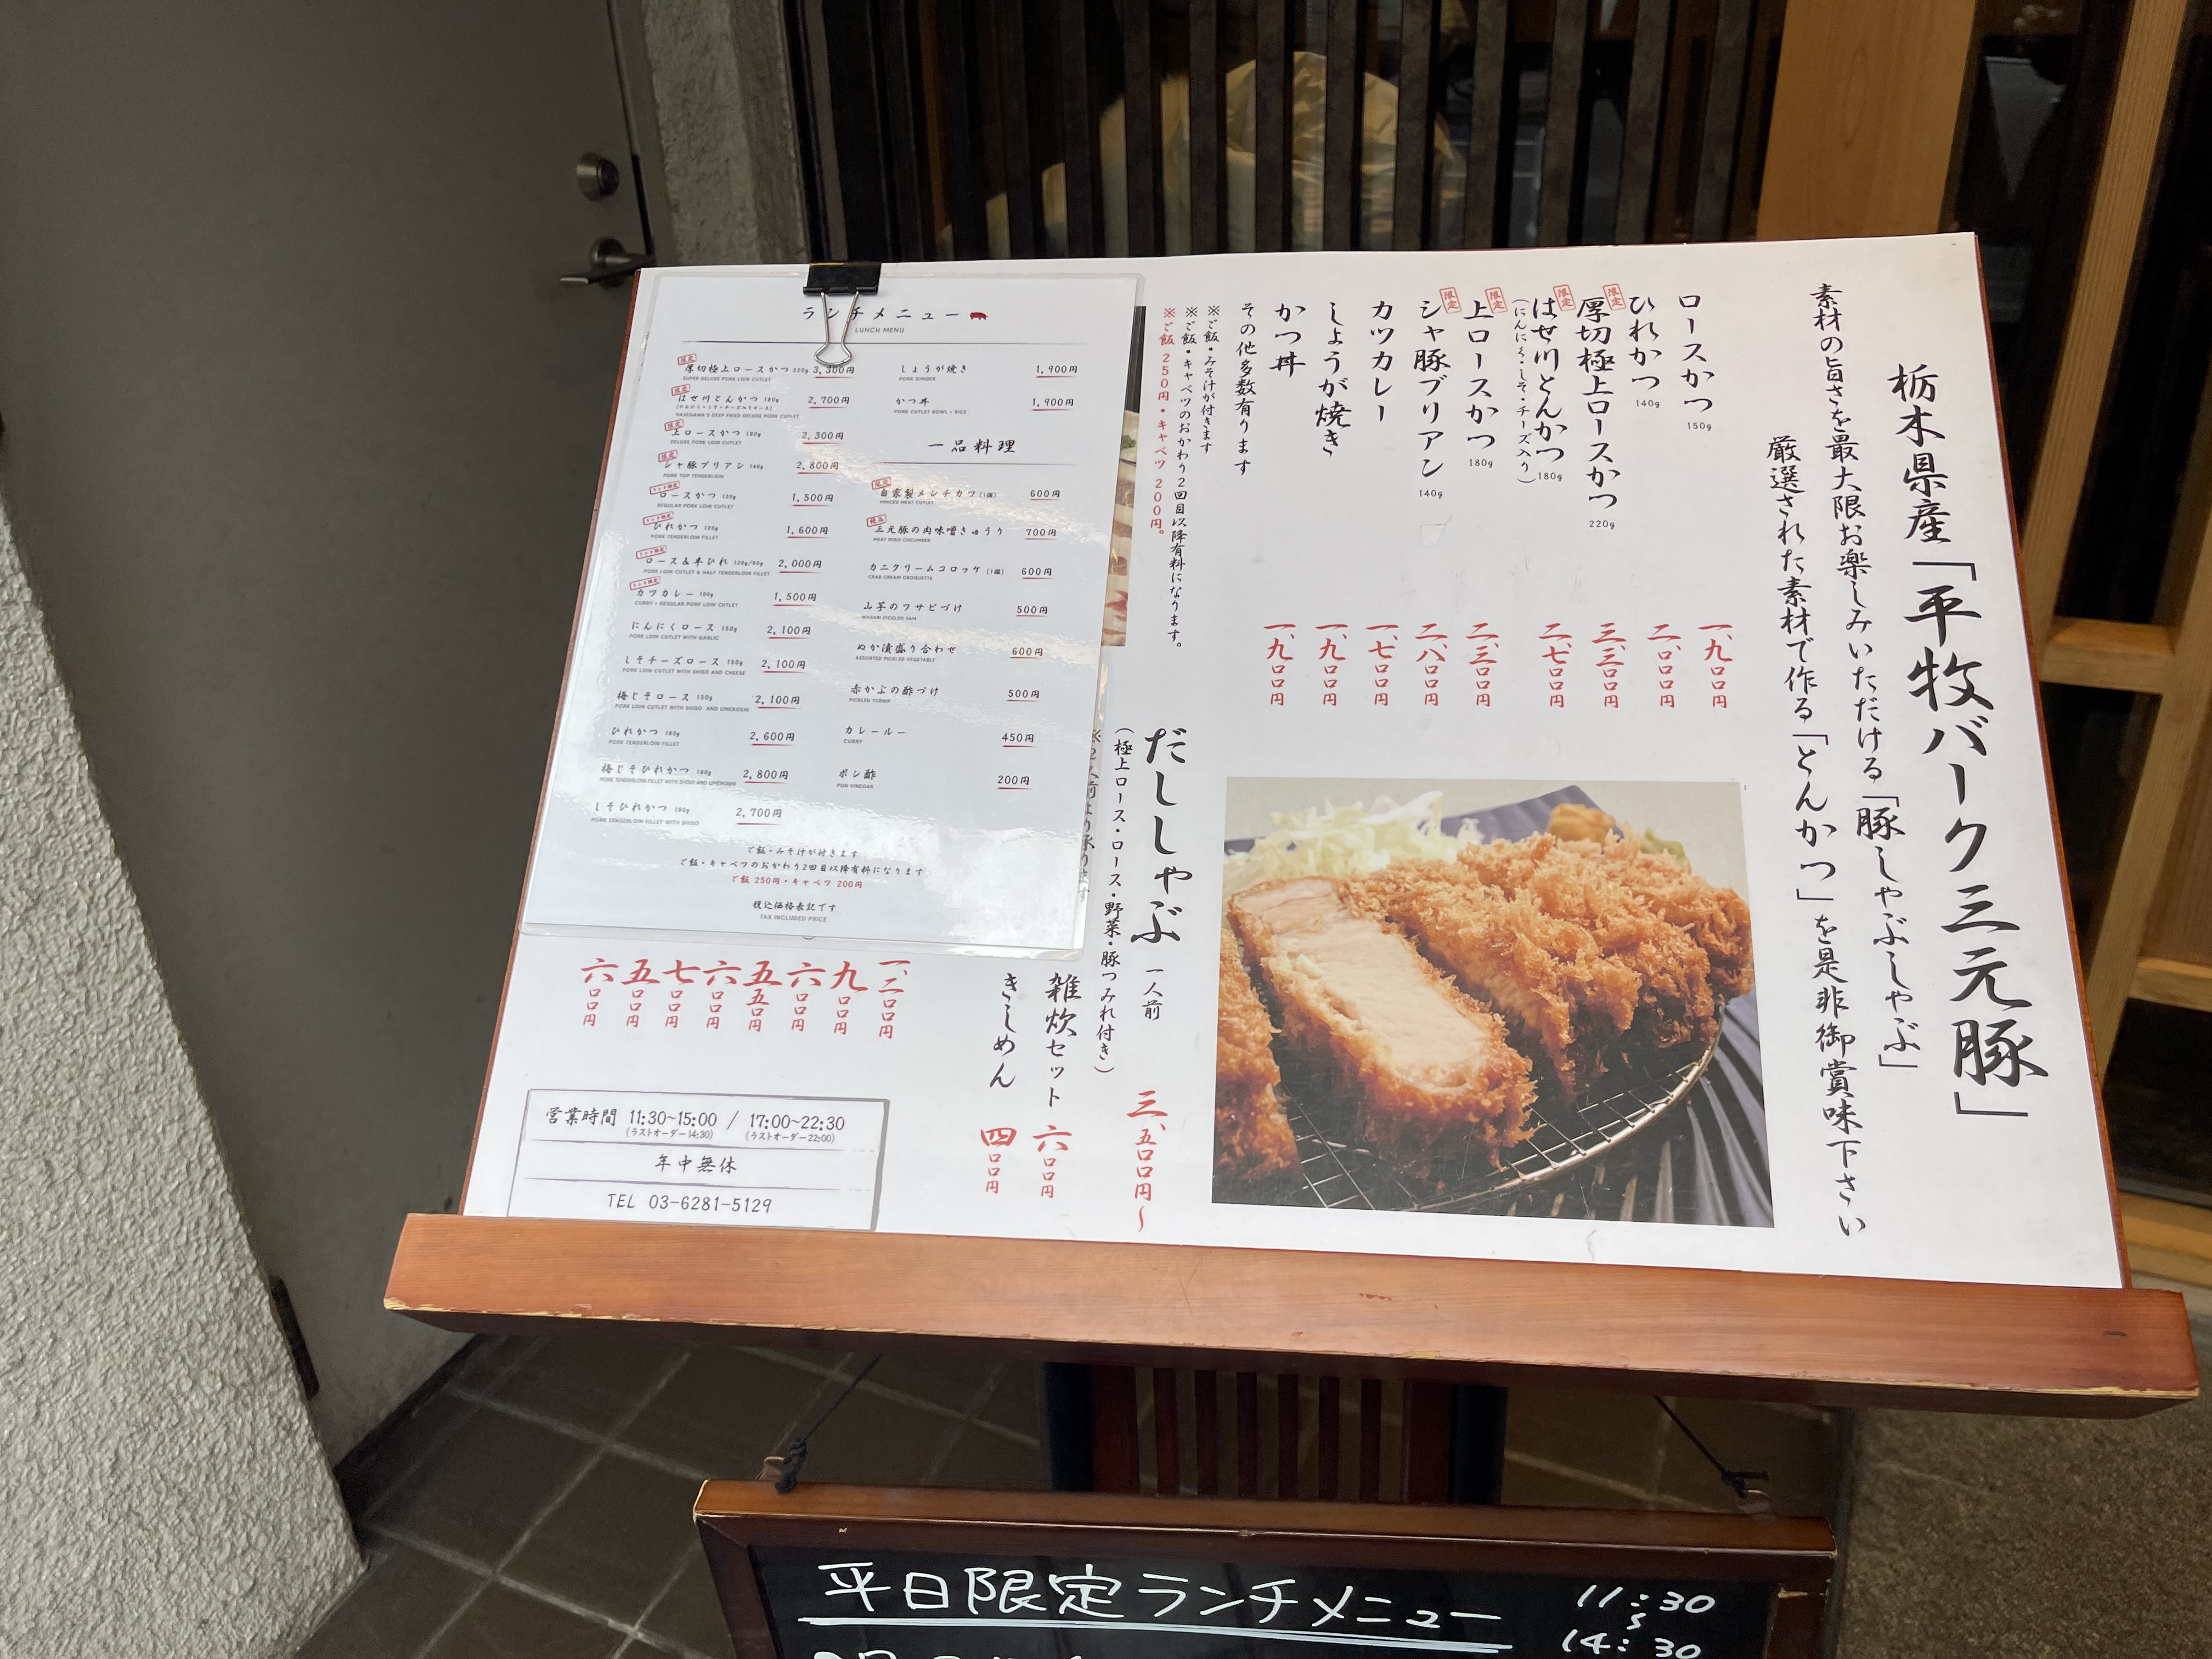 栃木県産「平牧バーク三元豚」
素材の旨さを最大限お楽しみいただける「豚しゃぶしゃぶ」
厳選された素材で作る「とんかつ」を是非御賞味下さい
ロースかつ 150g 一、九〇〇円
ひれかつ 140g 二、〇〇〇円
限定 厚切極上ロースかつ 220g 三、三〇〇円
限定 はせ川とんかつ 180g 二、七〇〇円
(にんにく・しそ・チーズ入り)
限定 上ロースかつ 180g 二、三〇〇円
限定 シャ豚ブリアン 140g 二、八〇〇円
カツカレー 一、七〇〇円
しょうが焼き 一、九〇〇円
かつ丼 一、九〇〇円
その他多数有ります
※ご飯・みそ汁が付きます
※ご飯・キャベツのおかわり2回目以降有料になります。
※ご飯 250円・キャベツ 200円。
だししゃぶ 一人前 三、五〇〇円〜
(極上ロース・ロース・野菜・豚つみれ付き)
雑炊セット 六〇〇円
きしめん 四〇〇円
一、二〇〇円
九〇〇円
六〇〇円
五五〇円
六〇〇円
七〇〇円
五〇〇円
六〇〇円
営業時間 11:30~15:00 / 17:00~22:30
(ラストオーダー14:30) (ラストオーダー22:00)
年中無休
TEL 03-6281-5129
ランチメニュー
LUNCH MENU
限定
厚切極上ロースかつ 220g 3,300円
SUPER DELUXE PORK LOIN CUTLET
限定
はせ川とんかつ 180g 2,700円
HASEGAWA'S DEEP FRIED DELUXE PORK CUTLET
限定
上ロースかつ 180g 2,300円
DELUXE PORK LOIN CUTLET
限定
シャ豚ブリアン 140g 2,800円
PORK TOP TENDERLOIN
ランチ限定
ロースかつ 120g 1,500円
REGULAR PORK LOIN CUTLET
ランチ限定
ひれかつ 120g 1,600円
PORK TENDERLOIN FILLET
ランチ限定
ロース&半ひれ 120g/60g 2,000円
PORK LOIN CUTLET & HALF TENDERLOIN FILLET
ランチ限定
カツカレー 100g 1,500円
CURRY + REGULAR PORK LOIN CUTLET
にんにくロース 150g 2,100円
PORK LOIN CUTLET WITH GARLIC
しそチーズロース 150g 2,100円
PORK LOIN CUTLET WITH SHISO AND CHEESE
梅じそロース 150g 2,100円
PORK LOIN CUTLET WITH SHISO AND UMEBOSHI
ひれかつ 180g 2,600円
PORK TENDERLOIN FILLET
梅じそひれかつ 180g 2,800円
PORK TENDERLOIN FILLET WITH SHISO AND UMEBOSHI
しそひれかつ 180g 2,700円
PORK TENDERLOIN FILLET WITH SHISO
しょうが焼き 1,900円
PORK GINGER
かつ丼 1,900円
PORK CUTLET BOWL + RICE
一品料理
限定
自家製メンチカツ(1個) 600円
MINCED MEAT CUTLET
三元豚の肉味噌きゅうり 700円
MEAT MISO CUCUMBER
カニクリームコロッケ(1個) 600円
CRAB CREAM CROQUETTE
山芋のワサビづけ 500円
WASABI-PICKLED YAM
ぬか漬盛り合わせ 600円
ASSORTED PICKLED VEGETABLE
赤かぶの酢づけ 500円
PICKLED TURNIP
カレールー 450円
CURRY
ポン酢 200円
PON VINEGAR
ご飯・みそ汁が付きます
ご飯・キャベツのおかわり2回目以降有料になります
ご飯 250円・キャベツ 200円
税込価格表記です
TAX INCLUDED PRICE
平日限定ランチメニュー 11:30
〜
14:30